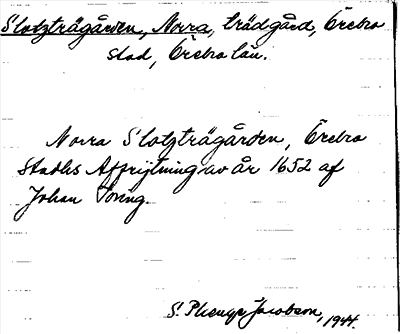 Slotzträgården, Norra, trädgård, Örebro
stad, Örebro län.
Norra Slotzträgården, Örebro
Stadhs Affrijtning av år 1652 af
Johan Töring.
S. Plenge Jacobson, 1944.